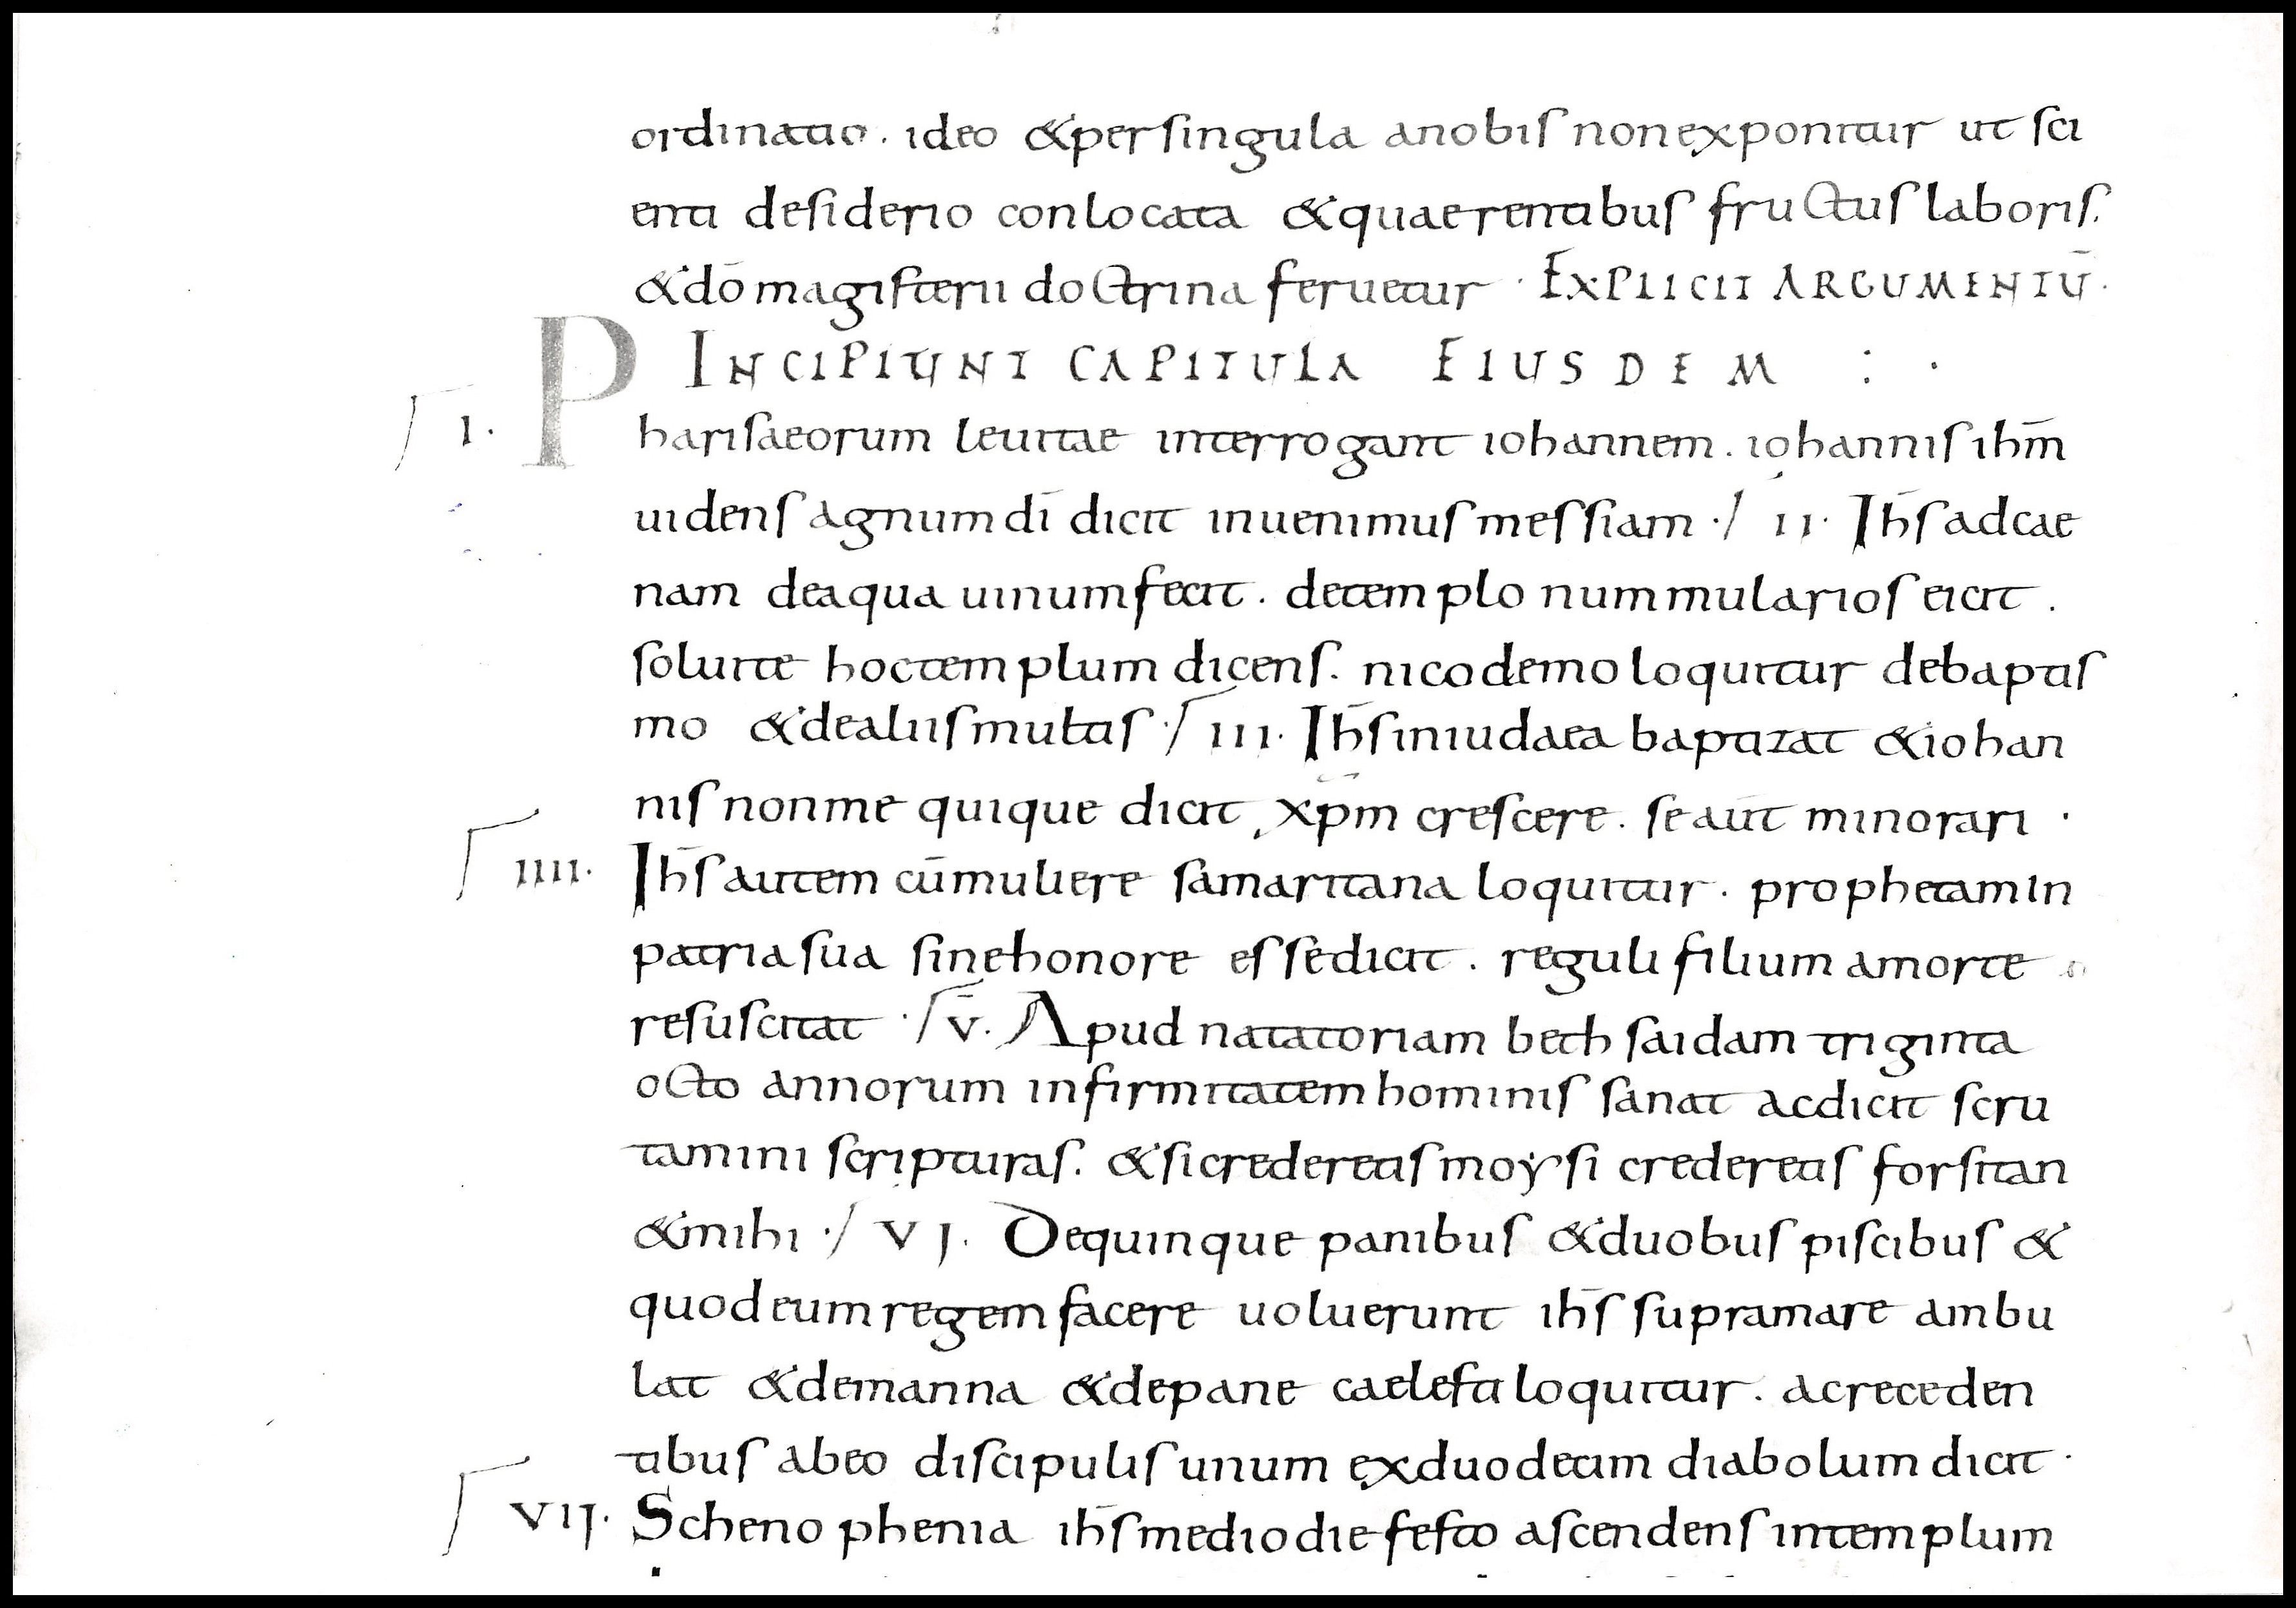 ordinatio. ideo & per singula a nobis non exponitur ut sci
enti desiderio conlocata & quaerentibus fructus laboris.
& dō magisterii doctrina seruetur · EXPLICIT ARGUMENTŪ.
INCIPIUNT CAPITULA EIUSDEM : ·
I. Pharisaeorum leuitae interrogant iohannem. iohannis ihm̄
uidens agnum dī dicit inuenimus messiam ·/ II. Ih̄s ad cae
nam de aqua uinum fecit. de templo nummularios eicit.
soluite hoc templum dicens. nicodemo loquitur de baptis
mo & de aliis multis ·/ III. Ih̄s in iudaea baptizat & iohan
nis non me quique dicit, xp̄m crescere. se aut̄ minorari ·
IIII. Ih̄s autem cū muliere samaritana loquitur. prophetam in
patria sua sine honore esse dicit. reguli filium a morte
resuscitat ·/ V. Apud natatoriam bethsaidam triginta
octo annorum infirmitatem hominis sanat ac dicit scru
tamini scripturas. & si crederetis moysi crederetis forsitan
& mihi ·/ VI. De quinque panibus & duobus piscibus &
quod eum regem facere uoluerunt ih̄s supra mare ambu
lat & de manna & de pane caelesti loquitur. ac receden
tibus ab eo discipulis unum ex duodecim diabolum dicit ·
VII. Schenophenia ih̄s medio die festo ascendens in templum